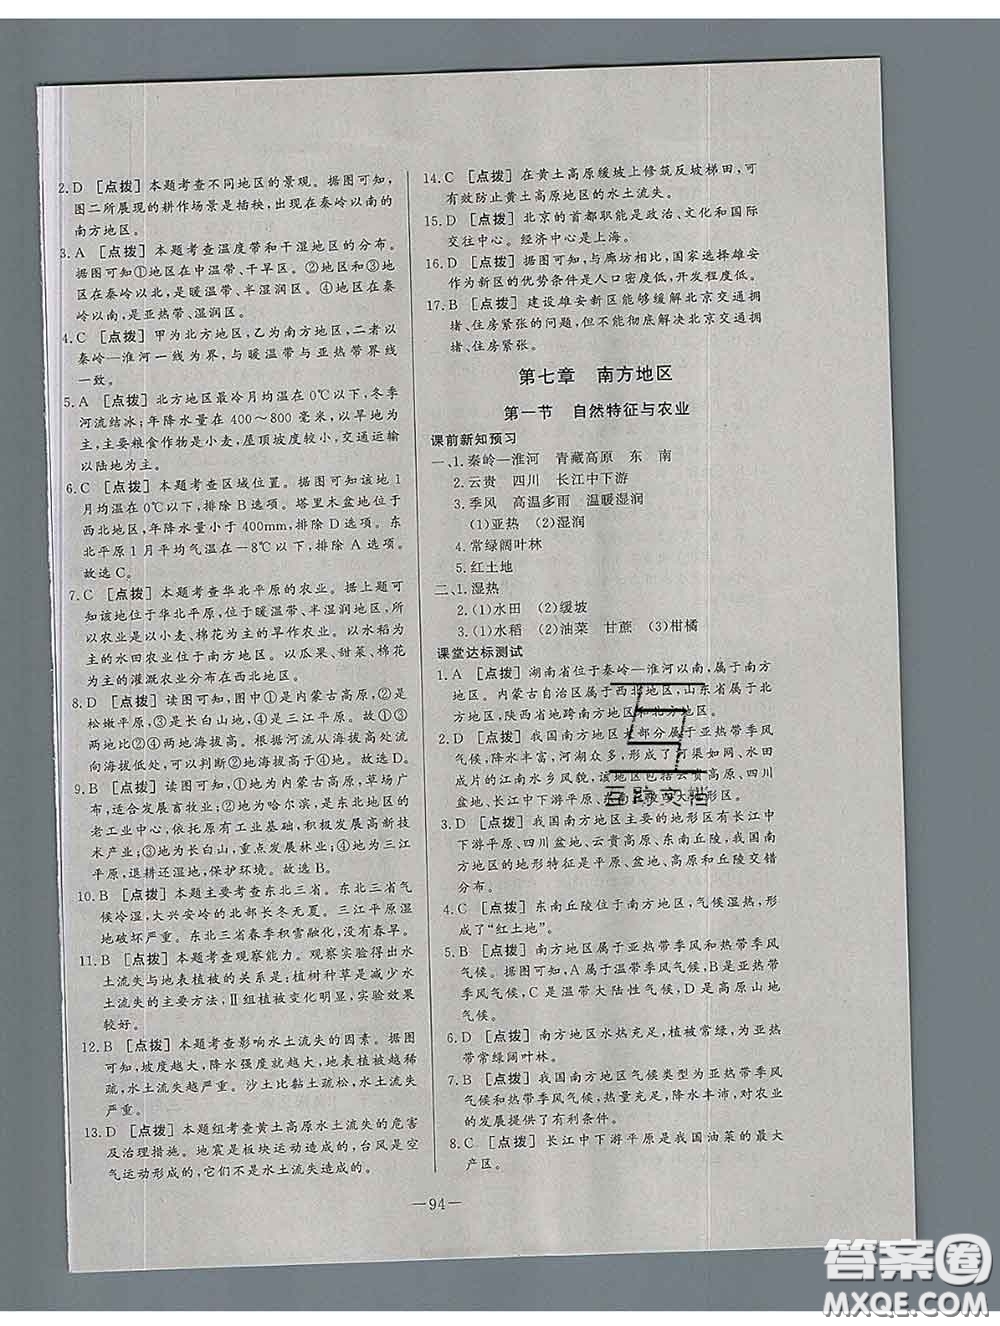 2. D [点拨] 本题考查不同地区的景观。据图可知,
图二所展现的耕作场景是插秧,出现在秦岭以南的
南方地区。
3. A [点拨] 本题考查温度带和干湿地区的分布。
据图可知①地区在中温带、干旱区。②地区和③地
区在秦岭以北,是暖温带、半湿润区。④地区在秦
岭以南,是亚热带、湿润区。
4. C [点拨] 甲为北方地区,乙为南方地区,二者以
秦岭—淮河一线为界,与暖温带与亚热带界线
一致。
5. A [点拨] 北方地区最冷月均温在0℃以下,冬季
河流结冰;年降水量在400～800毫米,以旱地为
主,主要粮食作物是小麦,屋顶坡度较小,交通运输
以陆地为主。
6. C [点拨] 本题考查区域位置。据图可知该地1
月均温在0℃以下,排除B选项。塔里木盆地位于
西北地区,年降水量小于400mm,排除D选项。东
北平原1月平均气温在－8℃以下,排除A选项。
故选C。
7. C [点拨] 本题考查华北平原的农业。据题可
知该地位于华北平原,位于暖温带、半湿润地区,所
以农业是以小麦、棉花为主的旱作农业。以水稻为
主的水田农业位于南方地区。以瓜果、甜菜、棉花
为主的灌溉农业分布在西北地区。
8. D [点拨] 读图可知,图中①是内蒙古高原,②是
松嫩平原,③是长白山地,④是三江平原。故①③
两地比②④两地海拔高。根据河流从海拔高处流
向海拔低处,可以判断②地海拔高于④地。故选D。
9. B [点拨] 读图可知①地为内蒙古高原,草场广
布,适合发展畜牧业;②地为哈尔滨,是东北地区的
老工业中心,依托原有工业基础,积极发展高新技
术产业;③地为长白山,重点发展林业;④地为三江
平原,退耕还湿地,保护环境。故选B。
10. B [点拨] 本题主要考查东北三省。东北三省气
候冷湿,大兴安岭的北部长冬无夏。三江平原湿
地破坏严重。东北三省春季积雪融化,没有春旱。
11. B [点拨] 本题考查观察能力。观察实验得出水
土流失与地表植被的关系是:植树种草是减少水
土流失的主要方法,Ⅱ组植被变化明显,实验效果
较好。
12. B [点拨] 本题考查影响水土流失的因素。图例
可知,坡度越大,降水强度就越大,地表植被越稀
疏,水土流失越严重。沙土比黏土疏松,水土流失
严重。
13. D [点拨] 本题组考查黄土高原水土流失的危害
及治理措施。地震是板块运动造成的,台风是空
气运动形成的,它们不是水土流失造成的。
14. C [点拨] 在黄土高原缓坡上修筑反坡梯田,可
有效防止黄土高原地区的水土流失。
15. D [点拨] 北京的首都职能是政治、文化和国际
交往中心。经济中心是上海。
16. D [点拨] 据图可知,与廊坊相比,国家选择雄安
作为新区的优势条件是人口密度低,开发程度低。
17. B [点拨] 建设雄安新区能够缓解北京交通拥
堵、住房紧张的问题,但不能彻底解决北京交通拥
堵、住房紧张。
第七章 南方地区
第一节 自然特征与农业
课前新知预习
一、1. 秦岭—淮河 青藏高原 东 南
2. 云贵 四川 长江中下游
3. 季风 高温多雨 温暖湿润
(1)亚热 (2)湿润
4. 常绿阔叶林
5. 红土地
二、1. 湿热
2. (1)水田 (2)缓坡
3. (1)水稻 (2)油菜 甘蔗 (3)柑橘
课堂达标测试
1. A [点拨] 湖南省位于秦岭—淮河以南,属于南方
地区。内蒙古自治区属于西北地区,山东省属于北
方地区,陕西省地跨南方地区和北方地区。
2. D [点拨] 我国南方地区大部分属于亚热带季风气
候,降水丰富,河湖众多,形成了河渠如网、水田
成片的江南水乡风貌。该地区包括云贵高原、四川
盆地、长江中下游平原、东南丘陵四大地形区。
3. D [点拨] 我国南方地区主要的地形区有长江中
下游平原、四川盆地、云贵高原、东南丘陵。我国南
方地区的地形特征是平原、盆地、高原和丘陵交错
分布。
4. C [点拨] 东南丘陵位于南方地区,气候湿热,形
成了“红土地”。
5. B [点拨] 南方地区属于亚热带季风和热带季风
气候。据图可知,A属于温带季风气候,B是亚热带
季风气候,C是温带大陆性气候,D是高原山地
气候。
6. D [点拨] 南方地区水热充足,植被常绿,为亚热
带常绿阔叶林。
7. B [点拨] 我国南方地区气候类型为亚热带季风
气候和热带季风气候,热量充足,降水丰沛,为农业
的发展提供了有利条件。
8. C [点拨] 长江中下游平原是我国油菜的最大
产区。
—94—
答案圈
MXQE.COM